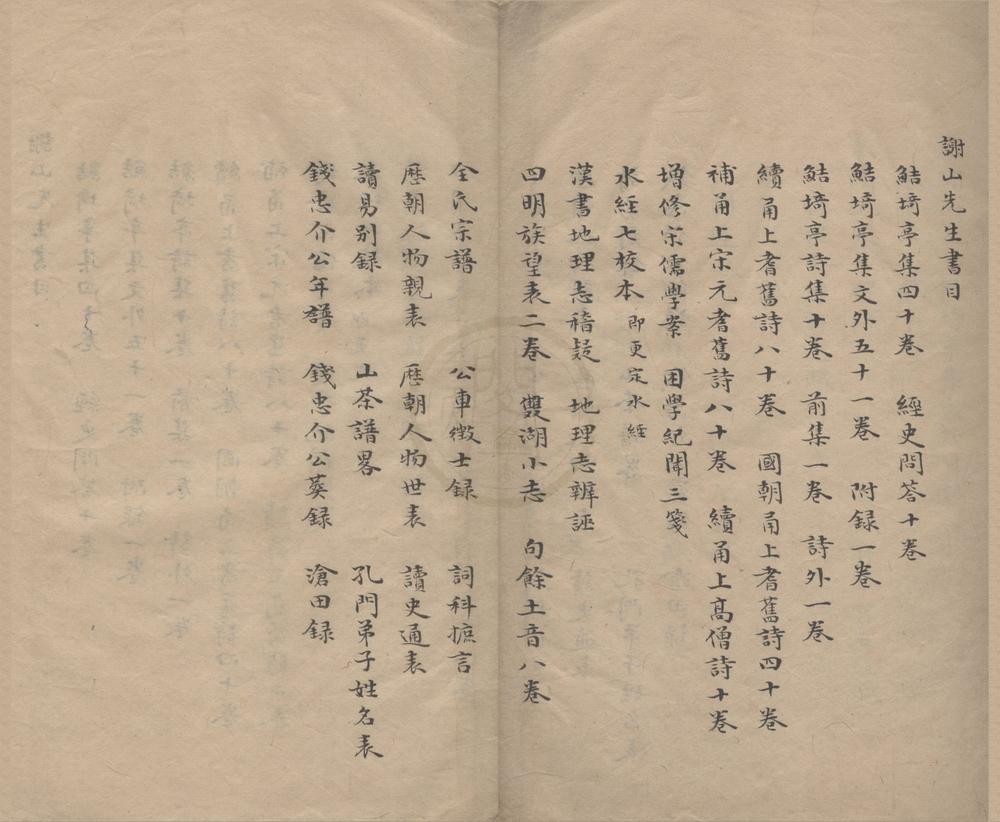 謝山先生書目
鮚埼亭集四十卷　經史問答十卷
鮚埼亭集文外五十一卷　附録一卷
鮚埼亭詩集十卷　前集一卷　詩外一卷
續甬上耆舊詩八十卷　國朝甬上耆舊詩四十卷
補甬上宋元耆舊詩八十卷　續甬上高僧詩十卷
增修宋儒學案　困學紀聞三箋
水經七校本　即更定水經
漢書地理志稽疑　地理志辨誣
四明族望表二卷　雙湖小志　句餘土音八卷
全氏宗譜　公車徵士録　詞科摭言
歷朝人物親表　歷朝人物世表　讀史通表
讀易别録　山茶譜畧　孔門弟子姓名表
錢忠介公年譜　錢忠介公葬録　滄田録